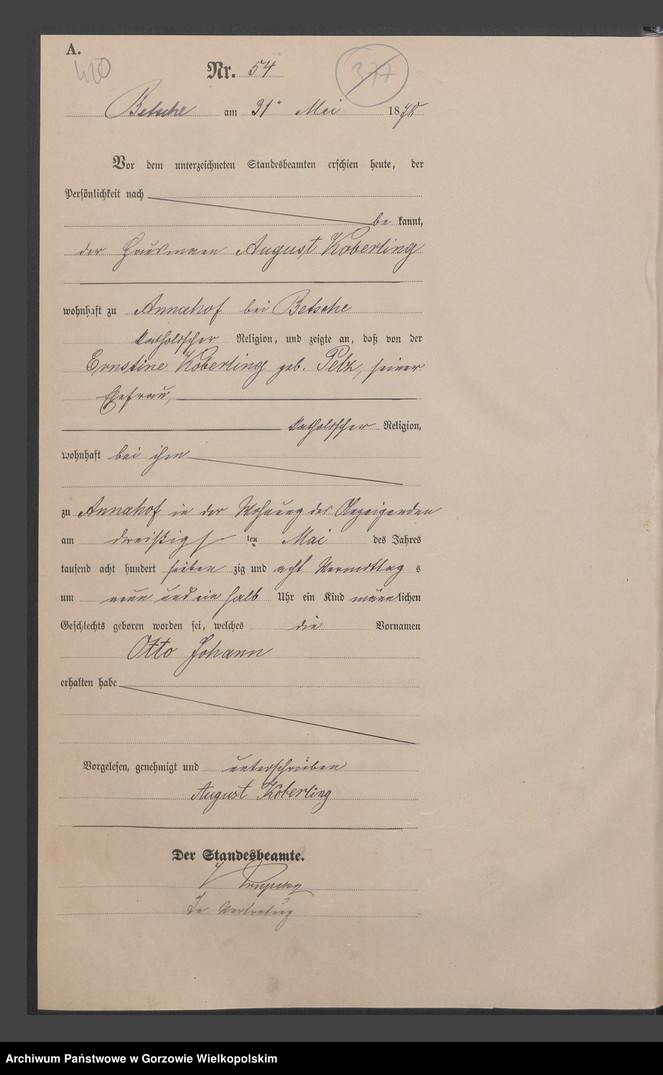 A.
420
Nr. 54
377
Betsche am 31ten Mai 1878
Vor dem unterzeichneten Standesbeamten erschien heute, der
Persönlichkeit nach
be kannt,
der Hausmann August Koberling
wohnhaft zu Annahof bei Betsche
katholischer Religion, und zeigte an, daß von der
Ernstine Koberling geb. Pelz, seiner
Ehefrau,
katholischer Religion,
wohnhaft bei ihm
zu Annahof in der Wohnung des Anzeigenden
am dreißigsten Mai des Jahres
tausend acht hundert sieben zig und acht Vormittag s
um neun und ein halb Uhr ein Kind männlichen
Geschlechts geboren worden sei, welches die Vornamen
Otto Johann
erhalten habe
Vorgelesen, genehmigt und unterschrieben
August Koberling
Der Standesbeamte.
In Vertretung
Archiwum Państwowe w Gorzowie Wielkopolskim